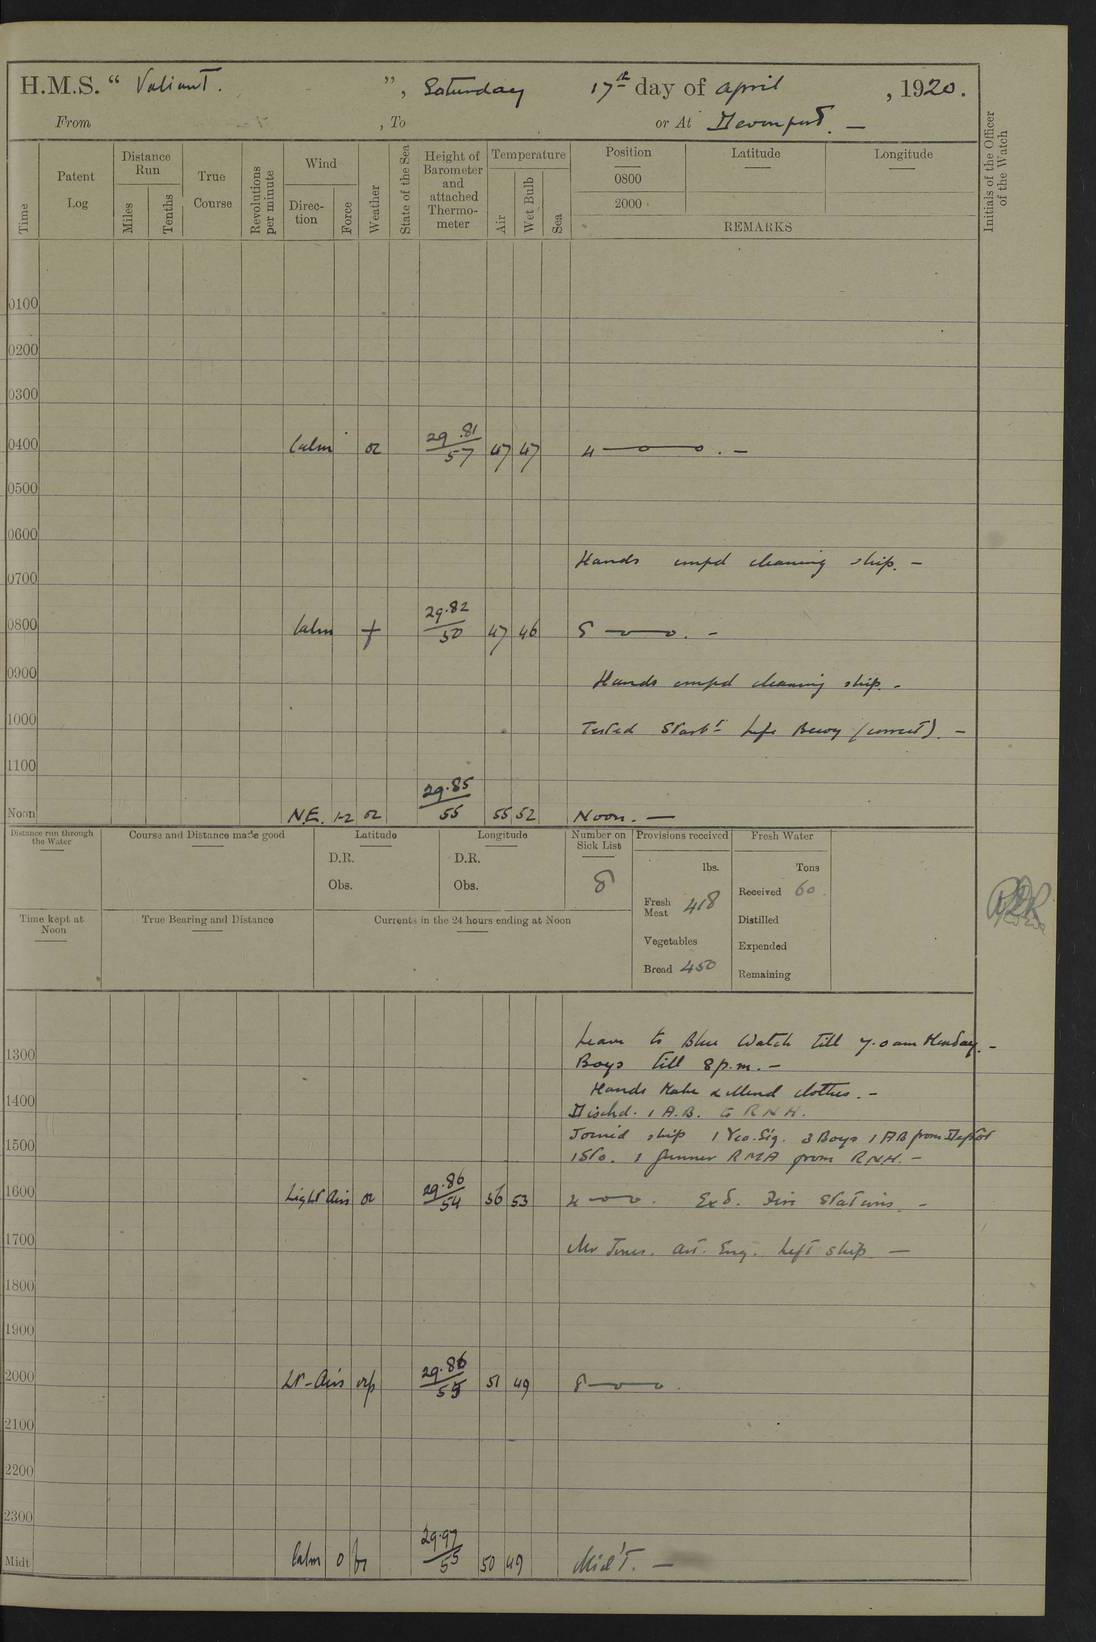 H.M.S. “ Valiant. ”, Saturday 17th day of April, 1920.
From , To or At Devonport. —
Time
Patent Log
Distance Run
Miles
Tenths
True Course
Revolutions per minute
Wind
Direction
Force
Weather
State of the Sea
Height of Barometer and attached Thermometer
Temperature
Air
Wet Bulb
Sea
Position
0800
2000
Latitude
Longitude
REMARKS
Initials of the Officer of the Watch
0100
0200
0300
0400 Calm 29.81 57 47 47 4 —o—o. —
0500
0600
Hands empd cleaning ship. —
0700
0800 Calm f 29.82 50 47 46 8 —o—o. —
0900 Hands empd cleaning ship. —
1000 Tested Starbd Life Buoy (correct). —
1100
Noon N.E. 1-2 29.85 55 55 52 Noon. —
Distance run through the Water
Course and Distance made good
Latitude
D.R.
Obs.
Longitude
D.R.
Obs.
Number on Sick List
8
Provisions received
lbs.
Fresh Meat 418
Vegetables
Bread 450
Fresh Water
Tons
Received 60
Distilled
Expended
Remaining
Time kept at Noon
True Bearing and Distance
Currents in the 24 hours ending at Noon
Leave to Blue Watch till 7.0 am Monday. —
1300 Boys till 8 p.m. —
Hands Make & Mend clothes. —
1400 Dischd. 1 A.B. to R N H.
Joined ship 1 Yeo. Sig. 3 Boys 1 AB from Depot
1500 1 Sto. 1 Gunner RMA from R.N.H. —
1600 Light Airs 29.86 54 56 53 4 —o—o. Exd. Fire Stations. —
1700 Mr Jones. Art. Eng. Left ship —
1800
1900
2000 Lt-Airs 29.86 55 51 49 8 —o—o.
2100
2200
2300
Midt Calm 0 29.97 55 50 49 Mid'T. —